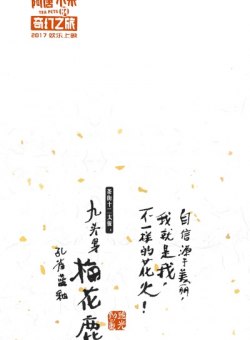 阿唐小米
TEA PETS 04
奇幻之旅
2017 欢乐上映
自信源于美丽,
我就是我,
不一样的花火!
茶街十二大侠,
九头身
梅花鹿
孔雀蓝釉